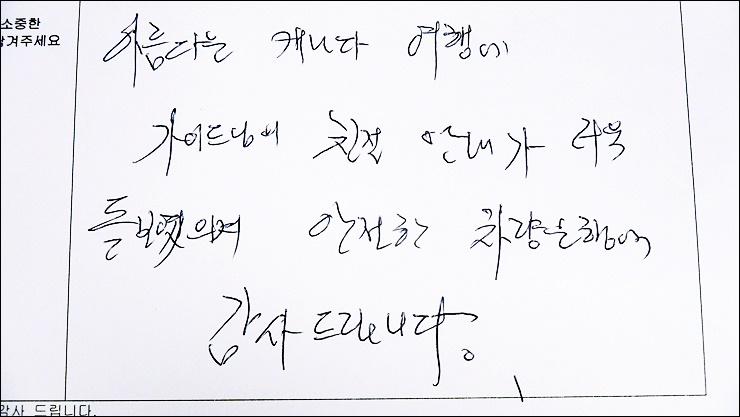 소중한
남겨주세요
아름다운 캐나다 여행에
가이드님의 친절 안내가 더욱
돋보였으며 안전한 차량운행에
감사드립니다.
감사 드립니다.